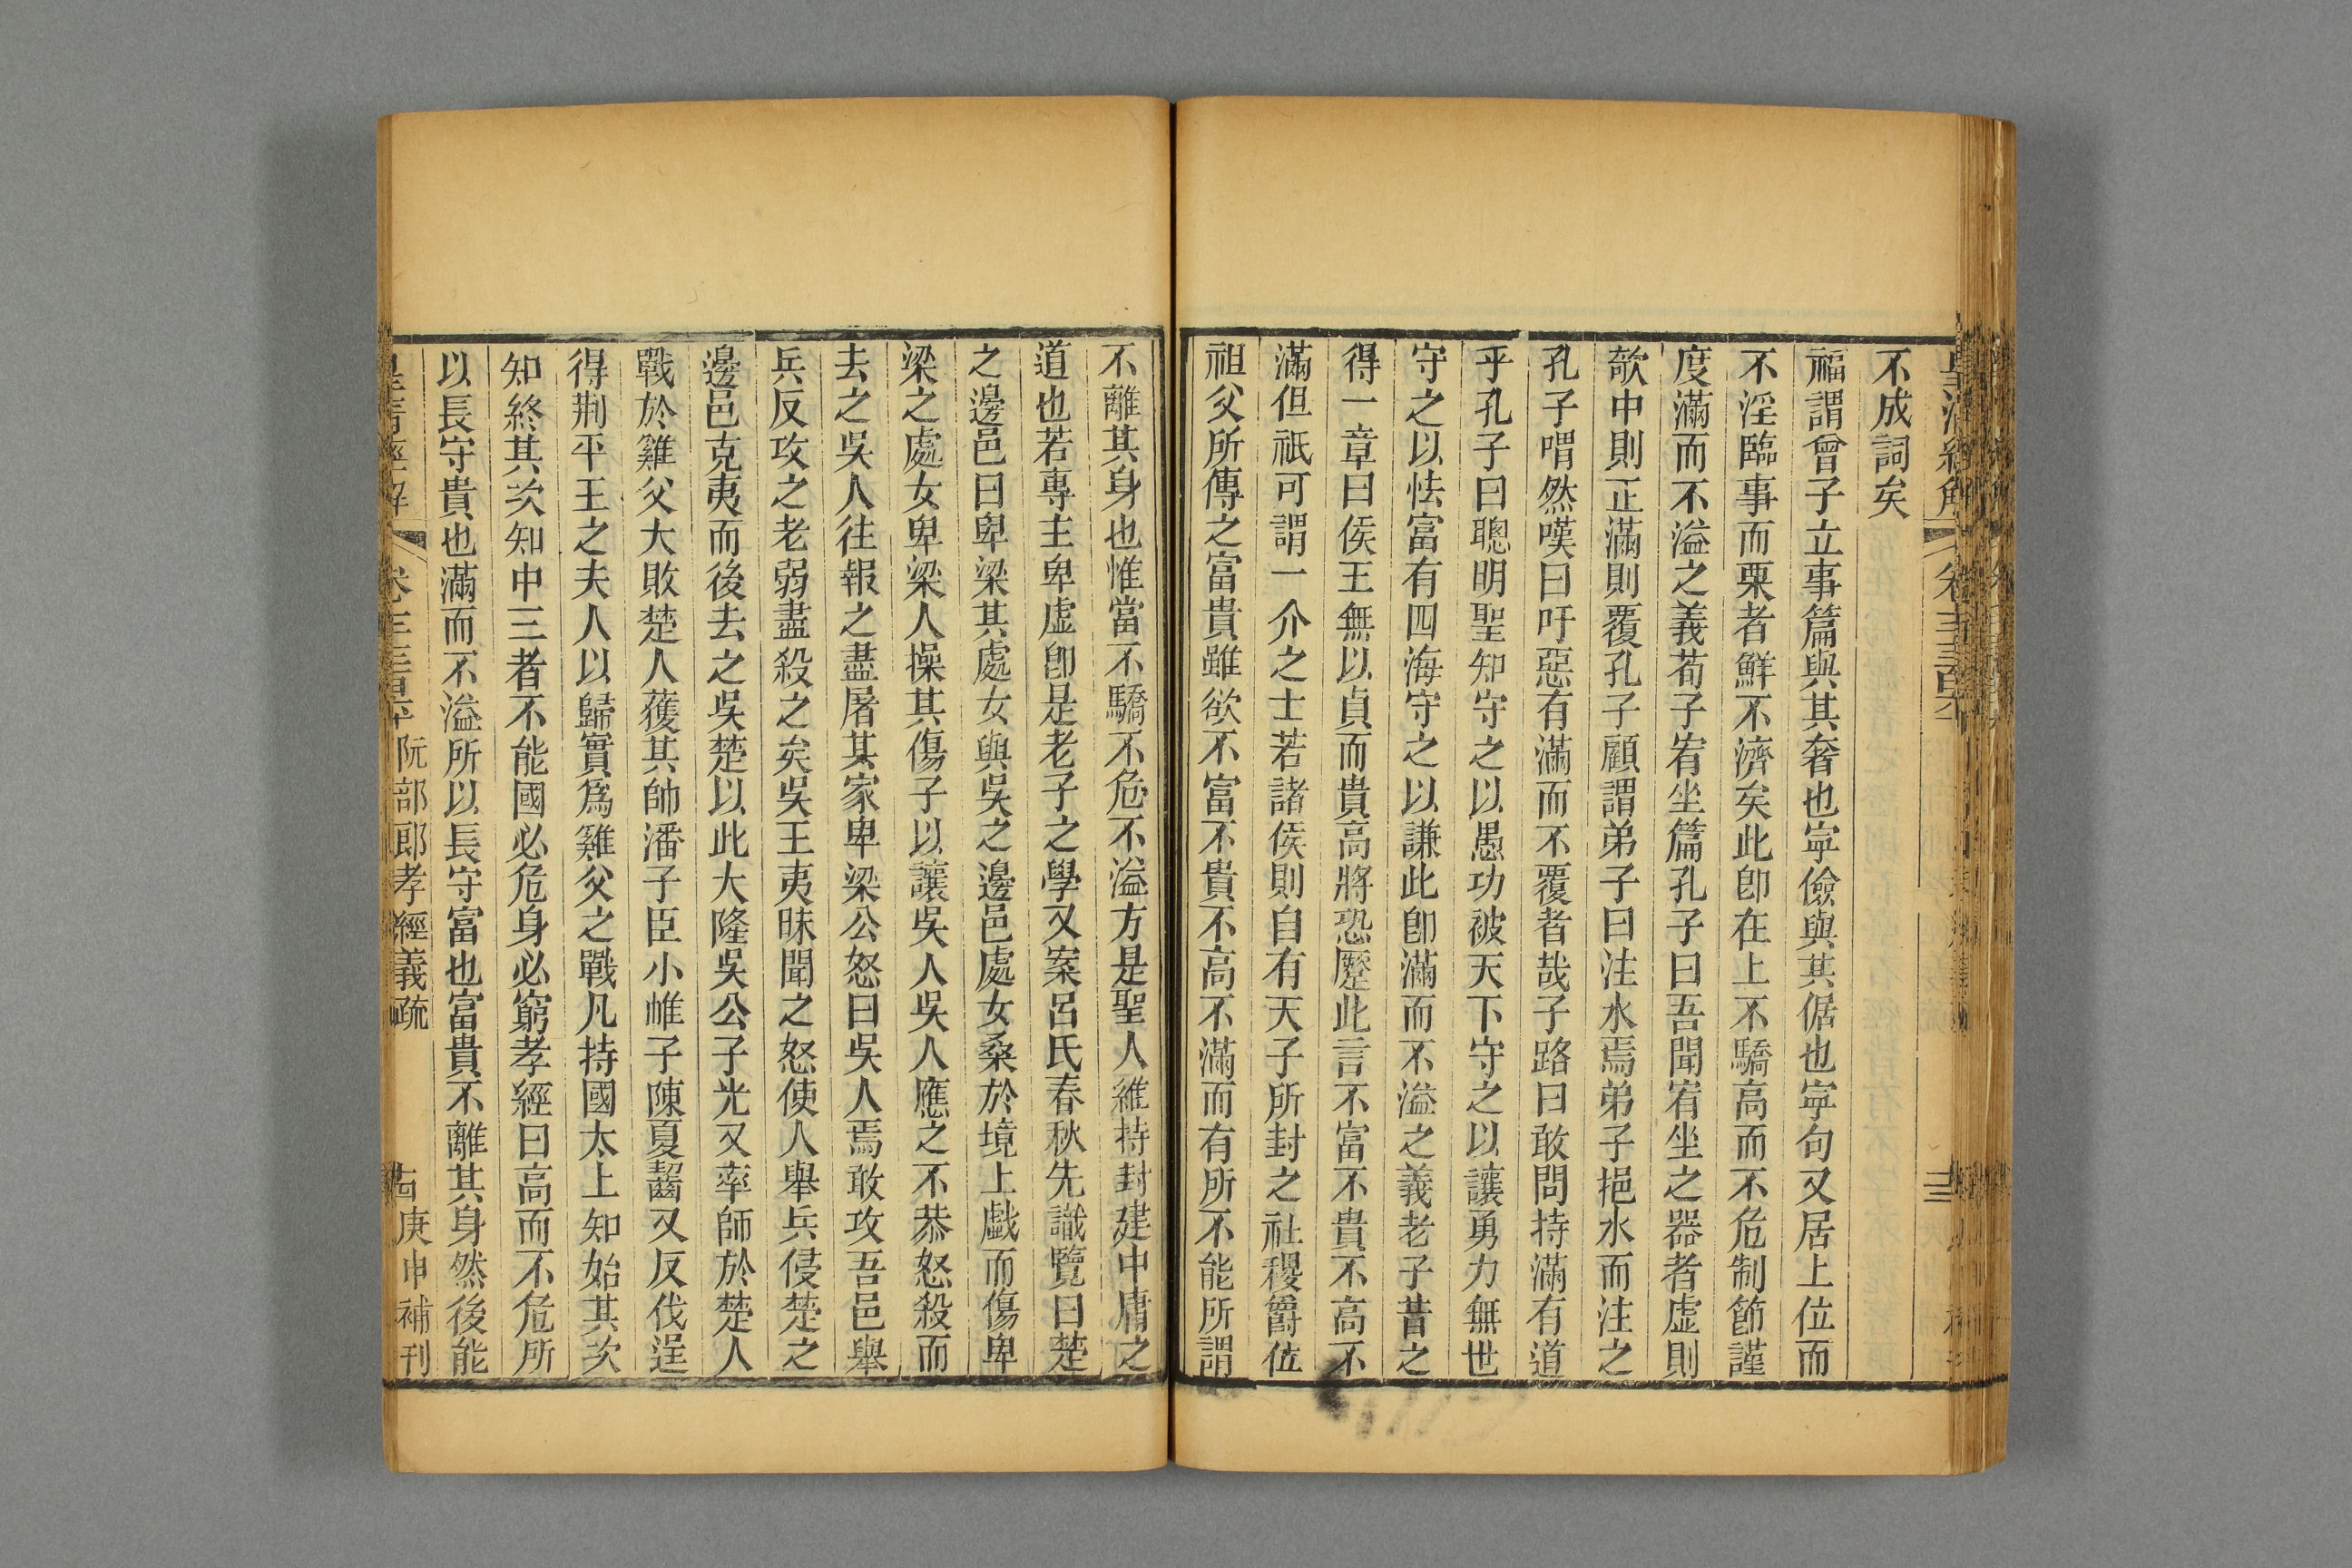 不成詞矣
福謂曾子立事篇與其奢也寜儉與其倨也寜句又居上位而
不淫臨事而栗者鮮不濟矣此卽在上不驕高而不危制節謹
度滿而不溢之義荀子宥坐篇孔子曰吾聞宥坐之器者虛則
欹中則正滿則覆孔子顧謂弟子曰注水焉弟子挹水而注之
孔子喟然嘆曰吁惡有滿而不覆者哉子路曰敢問持滿有道
乎孔子曰聰明聖知守之以愚功被天下守之以讓勇力無世
守之以怯富有四海守之以謙此卽滿而不溢之義老子昔之
得一章曰侯王無以貞而貴高將恐蹷此言不富不貴不高不
滿但祇可謂一介之士若諸侯則自有天子所封之社稷爵位
祖父所傳之富貴雖欲不富不貴不高不滿而有所不能所謂
不離其身也惟當不驕不危不溢方是聖人維持封建中庸之
道也若專主卑虛卽是老子之學又案呂氏春秋先識覽曰楚
之邊邑曰卑梁其處女與吳之邊邑處女桑於境上戲而傷卑
梁之處女卑梁人操其傷子以讓吳人吳人應之不恭怒殺而
去之吳人往報之盡屠其家卑梁公怒曰吳人焉敢攻吾邑舉
兵反攻之老弱盡殺之矣吳王夷昧聞之怒使人舉兵侵楚之
邊邑克夷而後去之吳楚以此大隆吳公子光又率師於楚人
戰於雞父大敗楚人獲其帥潘子臣小帷子陳夏齧又反伐逞
得荆平王之夫人以歸實爲雞父之戰凡持國太上知始其次
知終其次知中三者不能國必危身必窮孝經曰高而不危所
以長守貴也滿而不溢所以長守富也富貴不離其身然後能
皇淸經解 阮部郎孝經義疏 庚申補刊